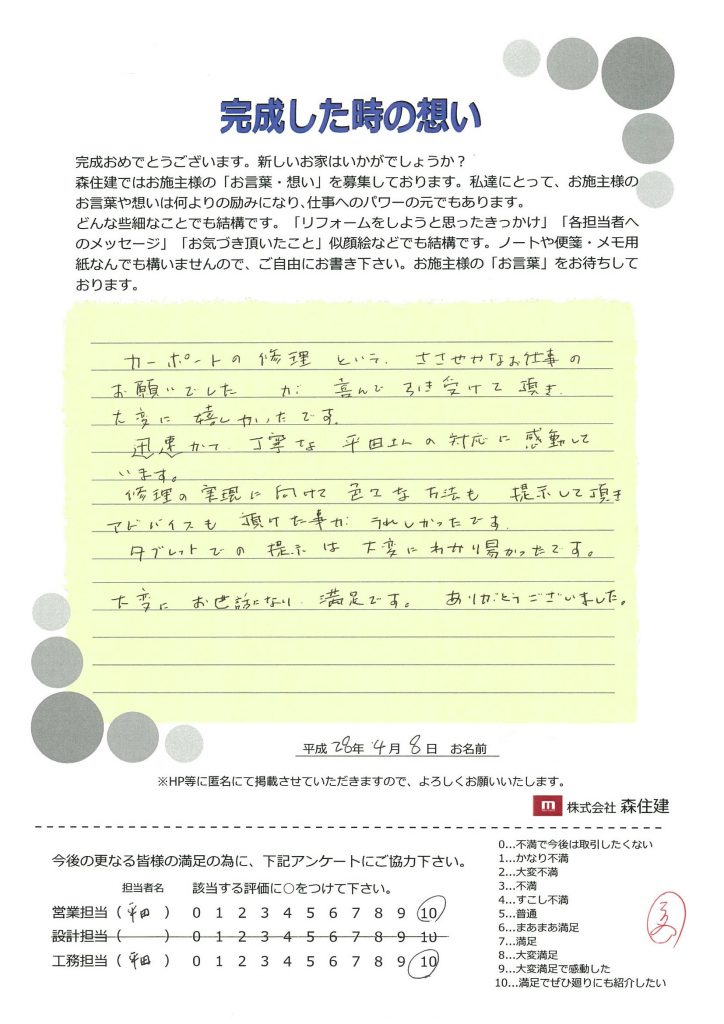 完成した時の想い
完成おめでとうございます。新しいお家はいかがでしょうか？
森住建ではお施主様の「お言葉・想い」を募集しております。私達にとって、お施主様の
お言葉や想いは何よりの励みになり､仕事へのパワーの元でもあります。
どんな些細なことでも結構です。「リフォームをしようと思ったきっかけ」「各担当者へ
のメッセージ」「お気づき頂いたこと」似顔絵などでも結構です。ノートや便箋・メモ用
紙なんでも構いませんので、ご自由にお書き下さい。お施主様の「お言葉」をお待ちして
おります。
カーポートの修理 という、ささせやかなお仕事の
お願いでした が 喜んで 引き受けて頂き、
大変に 嬉しかったです。
迅速かつ、丁寧な 平田さんの対応に 感動して
います。
修理の実現に向けて 色々な方法も 提示して頂き
アドバイスも 頂けた事が うれしかったです。
タブレットでの 提示は 大変にわかり易かったです。
大変に お世話になり、満足です。 ありがとうございました。
平成 28年 4月 8日 お名前
※HP等に匿名にて掲載させていただきますので、よろしくお願いいたします。
m 株式会社 森住建
今後の更なる皆様の満足の為に、下記アンケートにご協力下さい。
担当者名 該当する評価に○をつけて下さい。
営業担当（ 平田 ） 0 1 2 3 4 5 6 7 8 9 10
設計担当（ ） 0 1 2 3 4 5 6 7 8 9 10
工務担当（ 平田 ） 0 1 2 3 4 5 6 7 8 9 10
0…不満で今後は取引したくない
1…かなり不満
2…大変不満
3…不満
4…すこし不満
5…普通
6…まあまあ満足
7…満足
8…大変満足
9…大変満足で感動した
10…満足でぜひ廻りにも紹介したい